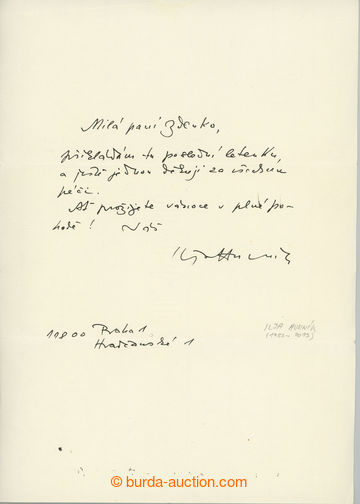 Milá paní Zdenko,
přikládám tu poslední letenku,
a ještě jednou děkuji za všechnu
péči.
Ať prožijete vánoce v plné po-
hodě! Váš
Ilja Hurník
11800 Praha 1
Hradčanské 1
ILJA HURNÍK
(1922-2013)
© burda-auction.com